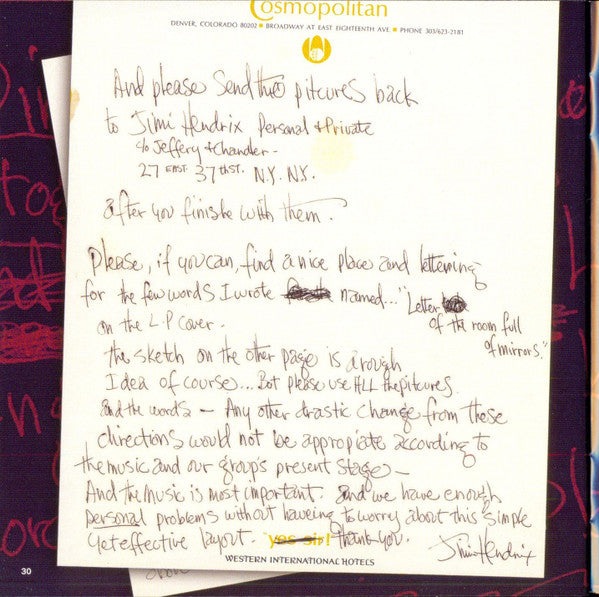 Cosmopolitan
DENVER, COLORADO 80202 ■ BROADWAY AT EAST EIGHTEENTH AVE. ■ PHONE 303/623-2181
And please send the pitcures back
to Jimi Hendrix Personal + Private
c/o Jeffery + Chandler -
27 EAST 37th ST. N.Y. N.Y.
after you finishe with them.
Please, if you can, find a nice place and lettering
for the few words I wrote named... "Letter
of the room full
of mirrors."
on the L-P cover.
the sketch on the other page is a rough
Idea of course... But please use ALL the pitcures
and the words — Any other drastic change from these
directions would not be appropiate according to
the music and our group's present stage —
And the music is most important. And we have enough
personal problems without haveing to worry about this simple
yet effective layout. yes sir! thank you.
Jimi Hendrix
WESTERN INTERNATIONAL HOTELS
30